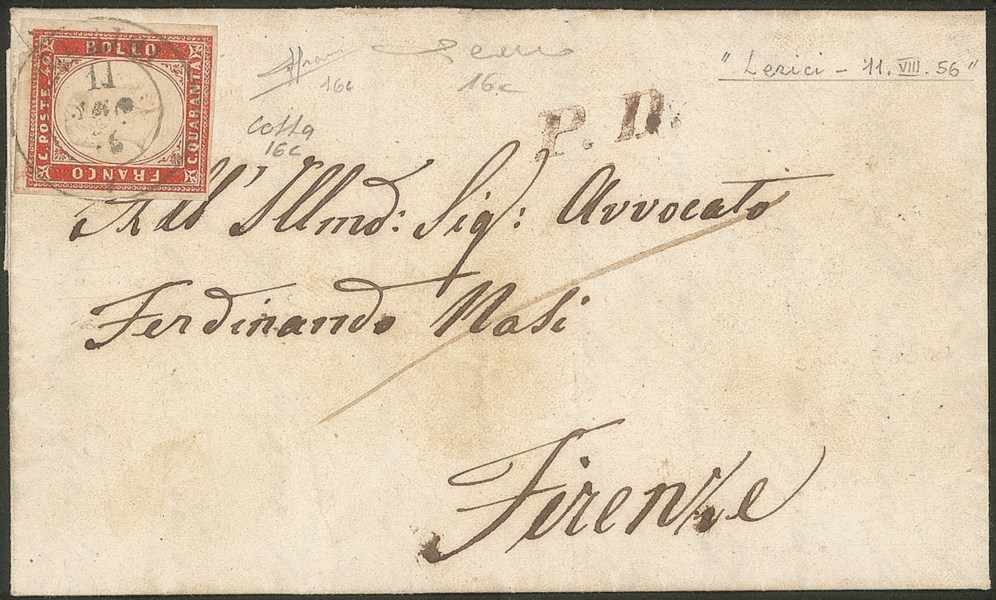 BOLLO
C. POSTE. 40
C. QUARANTA
FRANCO
11
16c
16c
Costa
16c
"Lerici - 11. VIII. 56"
P. D.
All' Illmo: Sig: Avvocato
Ferdinando Nasi
Firenze